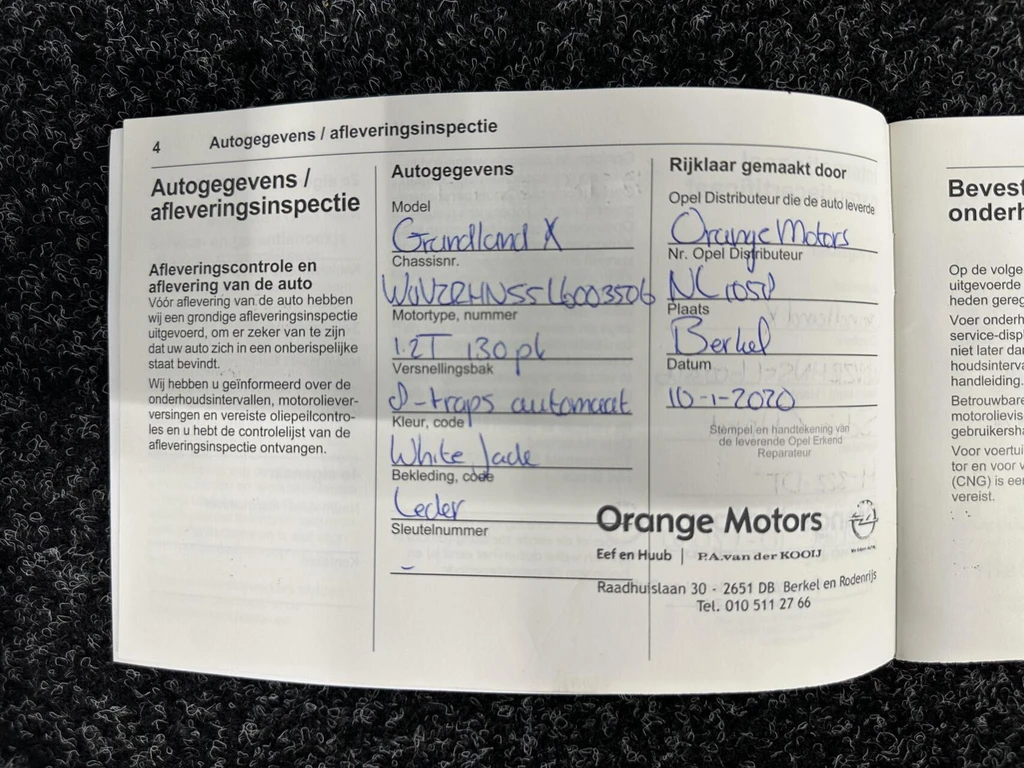 4 Autogegevens / afleveringsinspectie
Autogegevens /
afleveringsinspectie
Afleveringscontrole en
aflevering van de auto
Vóór aflevering van de auto hebben
wij een grondige afleveringsinspectie
uitgevoerd, om er zeker van te zijn
dat uw auto zich in een onberispelijke
staat bevindt.
Wij hebben u geïnformeerd over de
onderhoudsintervallen, motoroliever-
versingen en vereiste oliepeilcontro-
les en u hebt de controlelijst van de
afleveringsinspectie ontvangen.
Autogegevens
Model
Grandland X
Chassisnr.
W0VZRHNS5L6003506
Motortype, nummer
1.2T 130pk
Versnellingsbak
8-traps automaat
Kleur, code
White Jade
Bekleding, code
Leder
Sleutelnummer
-
Rijklaar gemaakt door
Opel Distributeur die de auto leverde
Orange Motors
Nr. Opel Distributeur
NL1058
Plaats
Berkel
Datum
10-1-2020
Stempel en handtekening van
de leverende Opel Erkend
Reparateur
Orange Motors
Eef en Huub | P.A.van der KOOIJ
Raadhuislaan 30 - 2651 DB Berkel en Rodenrijs
Tel. 010 511 27 66
Bevest
onderh
Op de volge
uitgevoerde
heden gereg
Voer onderh
service-disp
niet later dan
houdsinterva
handleiding.
Betrouwbare
motorolievis
gebruikersha
Voor voertui
tor en voor v
(CNG) is eer
vereist.